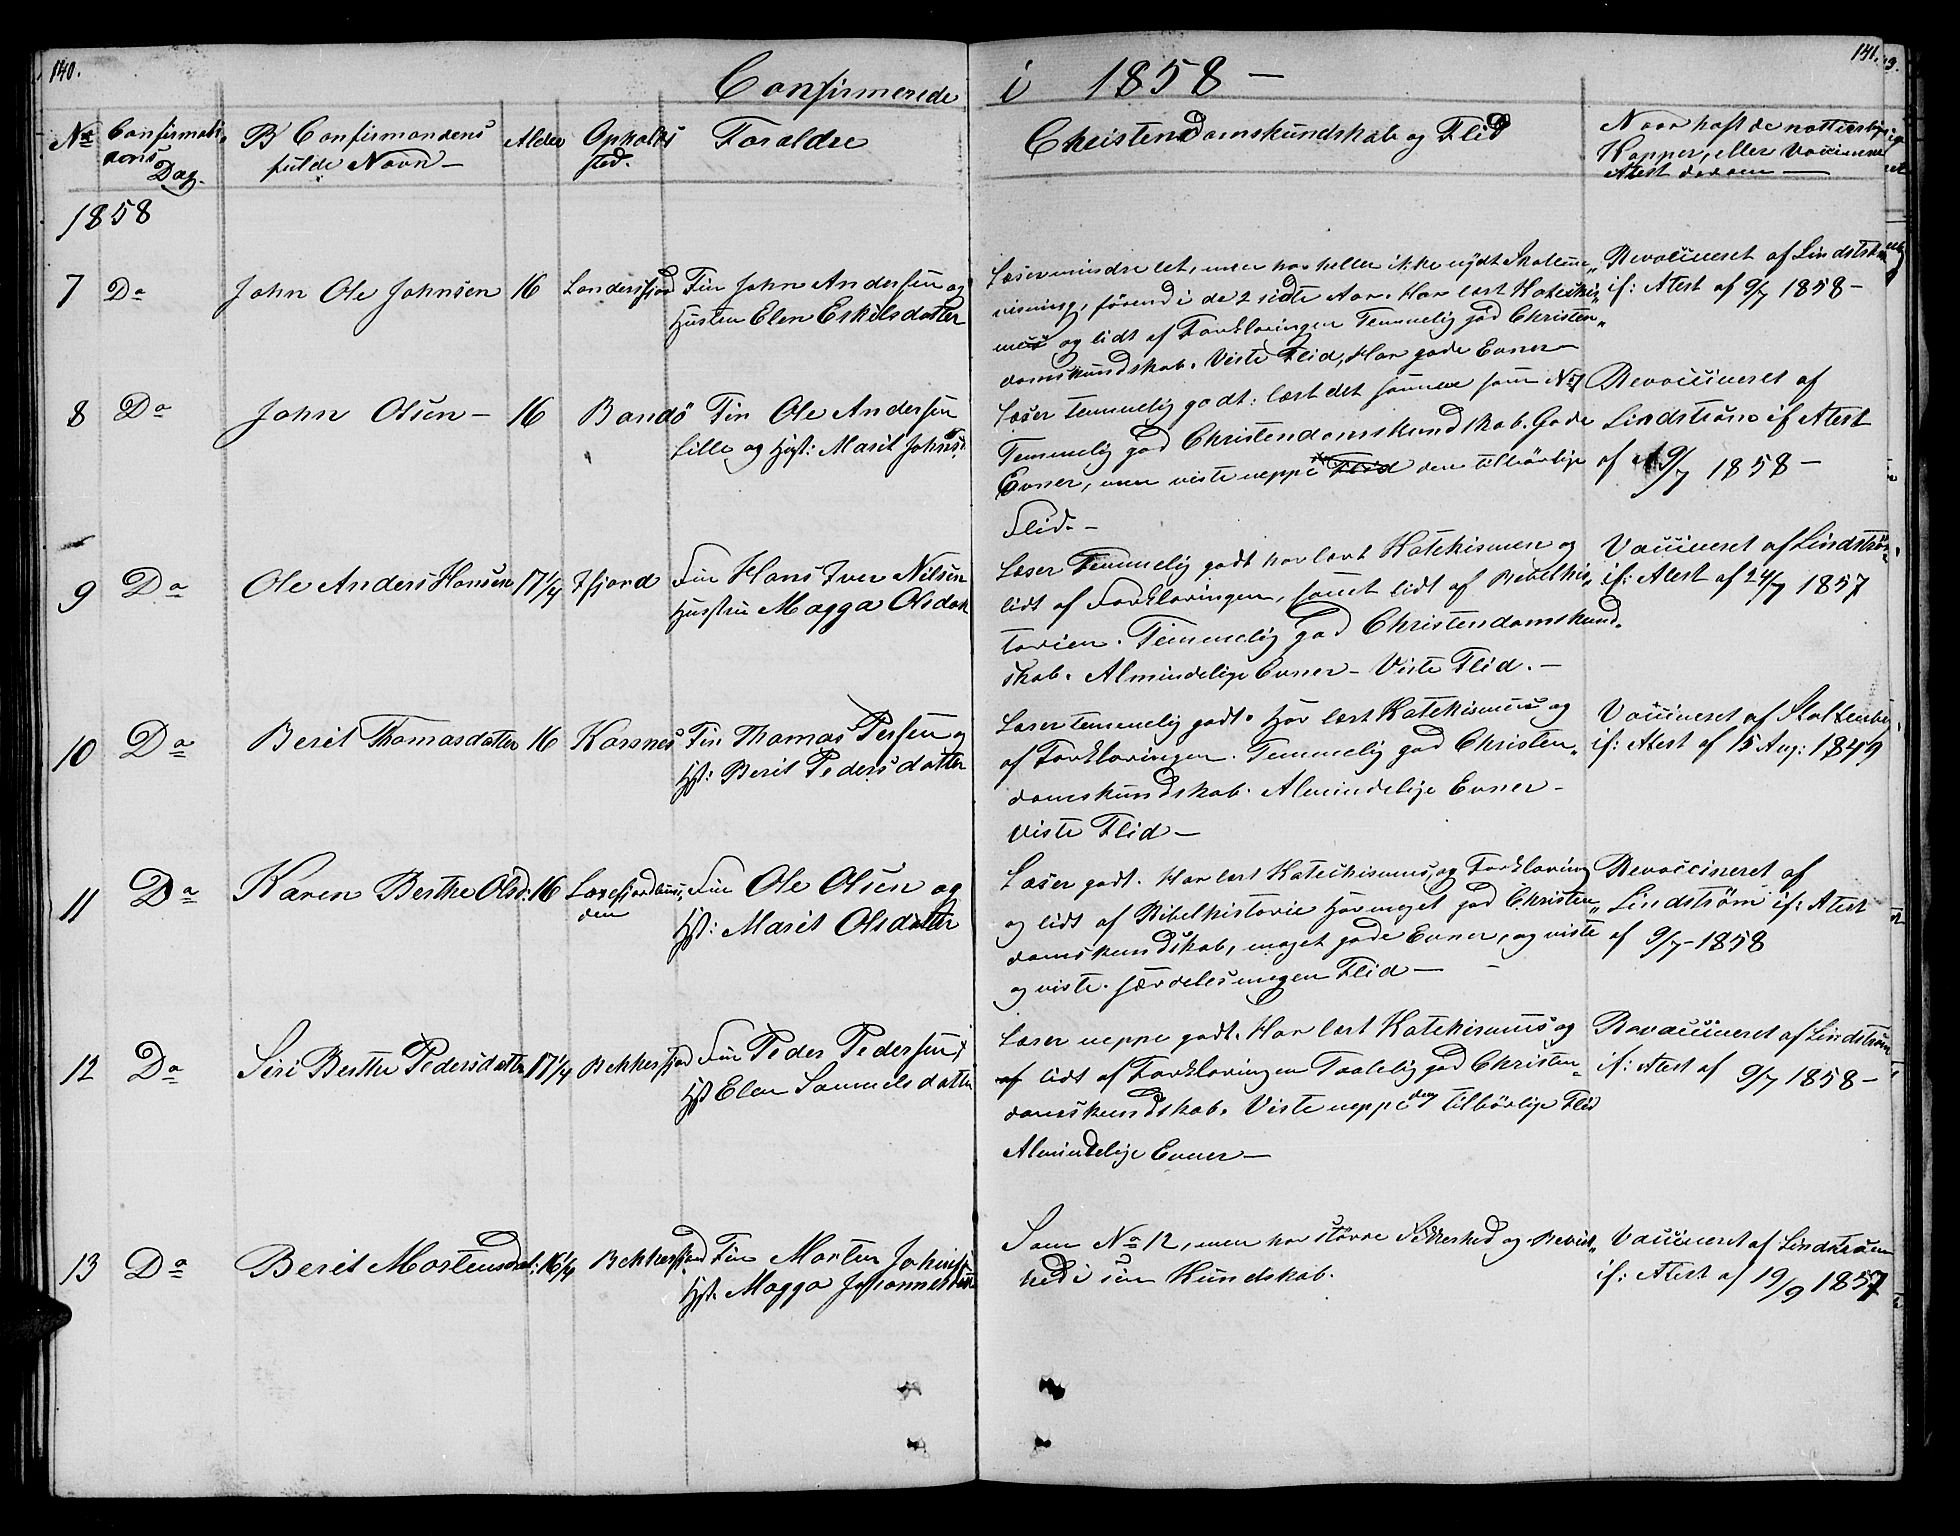 140.
141.
Confirmerede i 1858 —
No Confirmati-
onens
Dag.
Confirmandens
fulde Navn —
Alder
Opholds
sted.
Foraldre
Christendomskundskab og Flid
Naar haft de naturlige
Kopper, eller Vaccinens
Atest derom —
1858
7 Do John Ole Johnsen 16 Landersfjord Fin John Andersen og
Hustru Elen Eskilsdatter
Læser mindre let, men har heller ikke nydt Skoleun„
visning, førend i de 2 sidte Aar. Har lært Katekis„
mus og lidt af Forklaringen Temmelig god Christen„
domskundskab. Viste Flid, Har gode Evner —
Revacineret af Lindstrøm
if: Atest af 9/7 1858 —
8 Do John Olsen — 16 Bondö Fin Ole Andersen
Lille og Hst: Marit Johnsd.
Læser temmelig godt: lært det samme som No 7
Temmelig god Christendomskundskab. Gode
Evner, men viste neppe Flid den tilbörlige
Flid. —
Revaccineret af
Lindstrøm if Atest
af 9/7 1858 —
9 Do Ole Anders Hansen 17 1/4 Ifjord Fin Hans Iver Nilsen
Hustru Magga Olsdat
Læser Temmelig godt har lært Katekismen og
lidt af Forklaringen, samt lidt af Bibelhis„
torien. Temmelig god Christendomskund„
skab. Almindelige Evner — Viste Flid. —
Vaccineret af Lindstrøm
if: Atest af 24/7 1857
10 Do Berit Thomasdatter 16 Karsnes Fin Thomas Persen og
Hst: Berit Pedersdatter
Læser temmelig godt. Har lært Katekismus og
af Forklaringen. Temmelig god Christen„
domskundskab. Almindelige Evner —
Viste Flid —
Vaccineret af Stoltenberg
if: Atest af 15 Aug: 1849
11 Do Karen Berthe Olsd: 16 Laxefjordbun„
den
Fin Ole Olsen og
Hst: Marit Olsdatter
Læser godt. Har lært Katechismus, og Forklaring
og lidt af Bibelhistorie Har meget god Christen„
domskundskab, meget gode Evner, og viste
og viste særdeles megen Flid —
Revaccineret af
Lindstrøm if: Atest
af 9/7 — 1858
12 Do Siri Berthe Pedersdatter 17 1/4 Bekkerfjord Fin Peder Pedersen,
Hst Elen Samuelsdatter
Læser neppe godt. Har lært Katekismus og
af lidt af Forklaringen Taalelig god Christen„
domskundskab. Viste neppe den tilbörlige Flid
Almindelige Evner —
Revaccineret af Lindstrøm
if: Atest af 9/7 1858 —
13 Do Berit Mortensdat: 16 1/4 Bekkerfjord Fin Morten Johns
Hst. Magga Johannesdatter
Som No 12, men har större Sikkerhed og Bevist„
hed i sin Kundskab.
Vaccineret af Lindstrøm
if: Atest af 19/9 1857